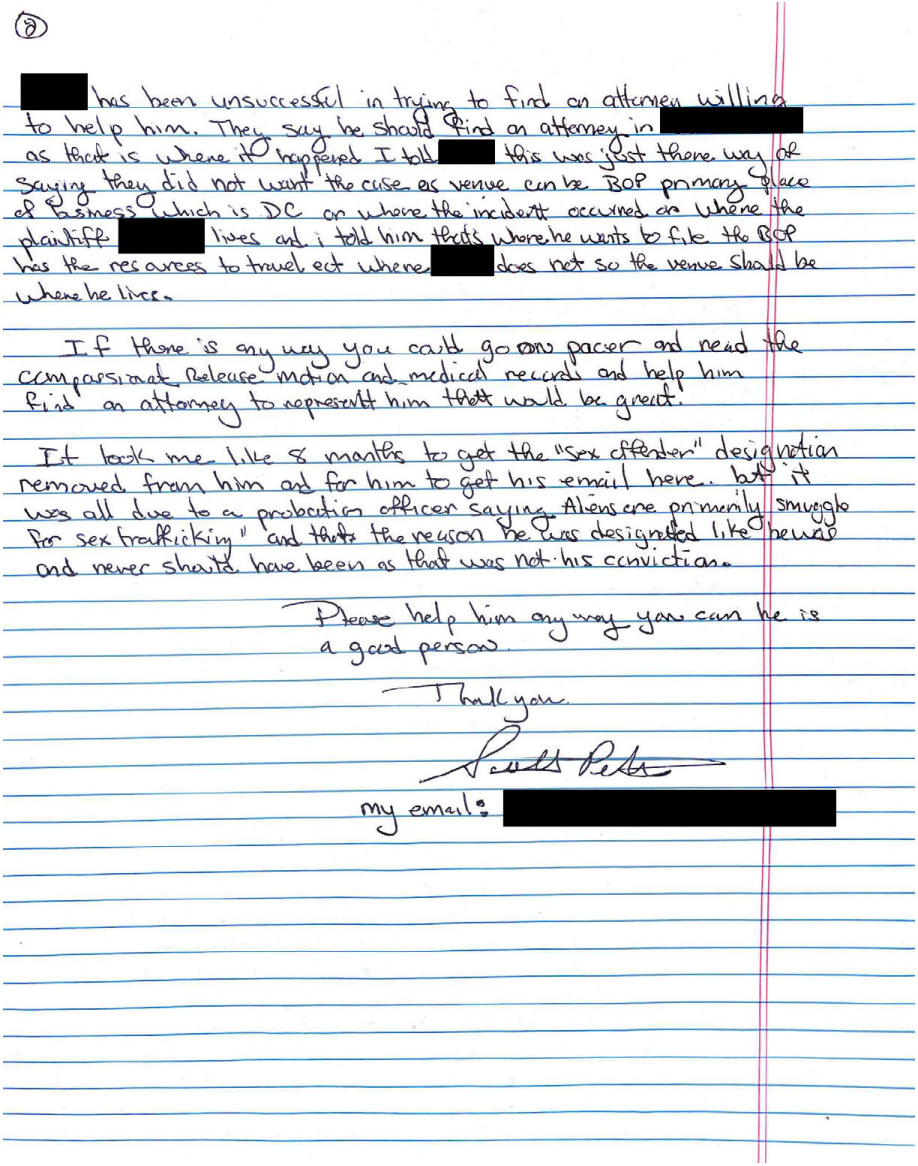 2
has been unsuccessful in trying to find an attorney willing
to help him. They say he should find an attorney in
as that is where it happened I told this was just there way of
saying they did not want the case as venue can be BOP primary place
of Business which is DC or where the incident occurred or where the
plaintiff lives and i told him thats where he wants to file the BOP
has the resources to travel ect where does not so the venue should be
where he lives.
If there is any way you could go on pacer and read the
compassionat Release motion and medical records and help him
find an attorney to represent him that would be great.
It took me like 8 months to get the "sex offender" designation
removed from him and for him to get his email here. but it
was all due to a probation officer saying Aliens are primarily smuggle
for sex trafficking" and thats the reason he was designated like he was
and never should have been as that was not his conviction.
Please help him any way you can he is
a good person.
Thank you.
my email: